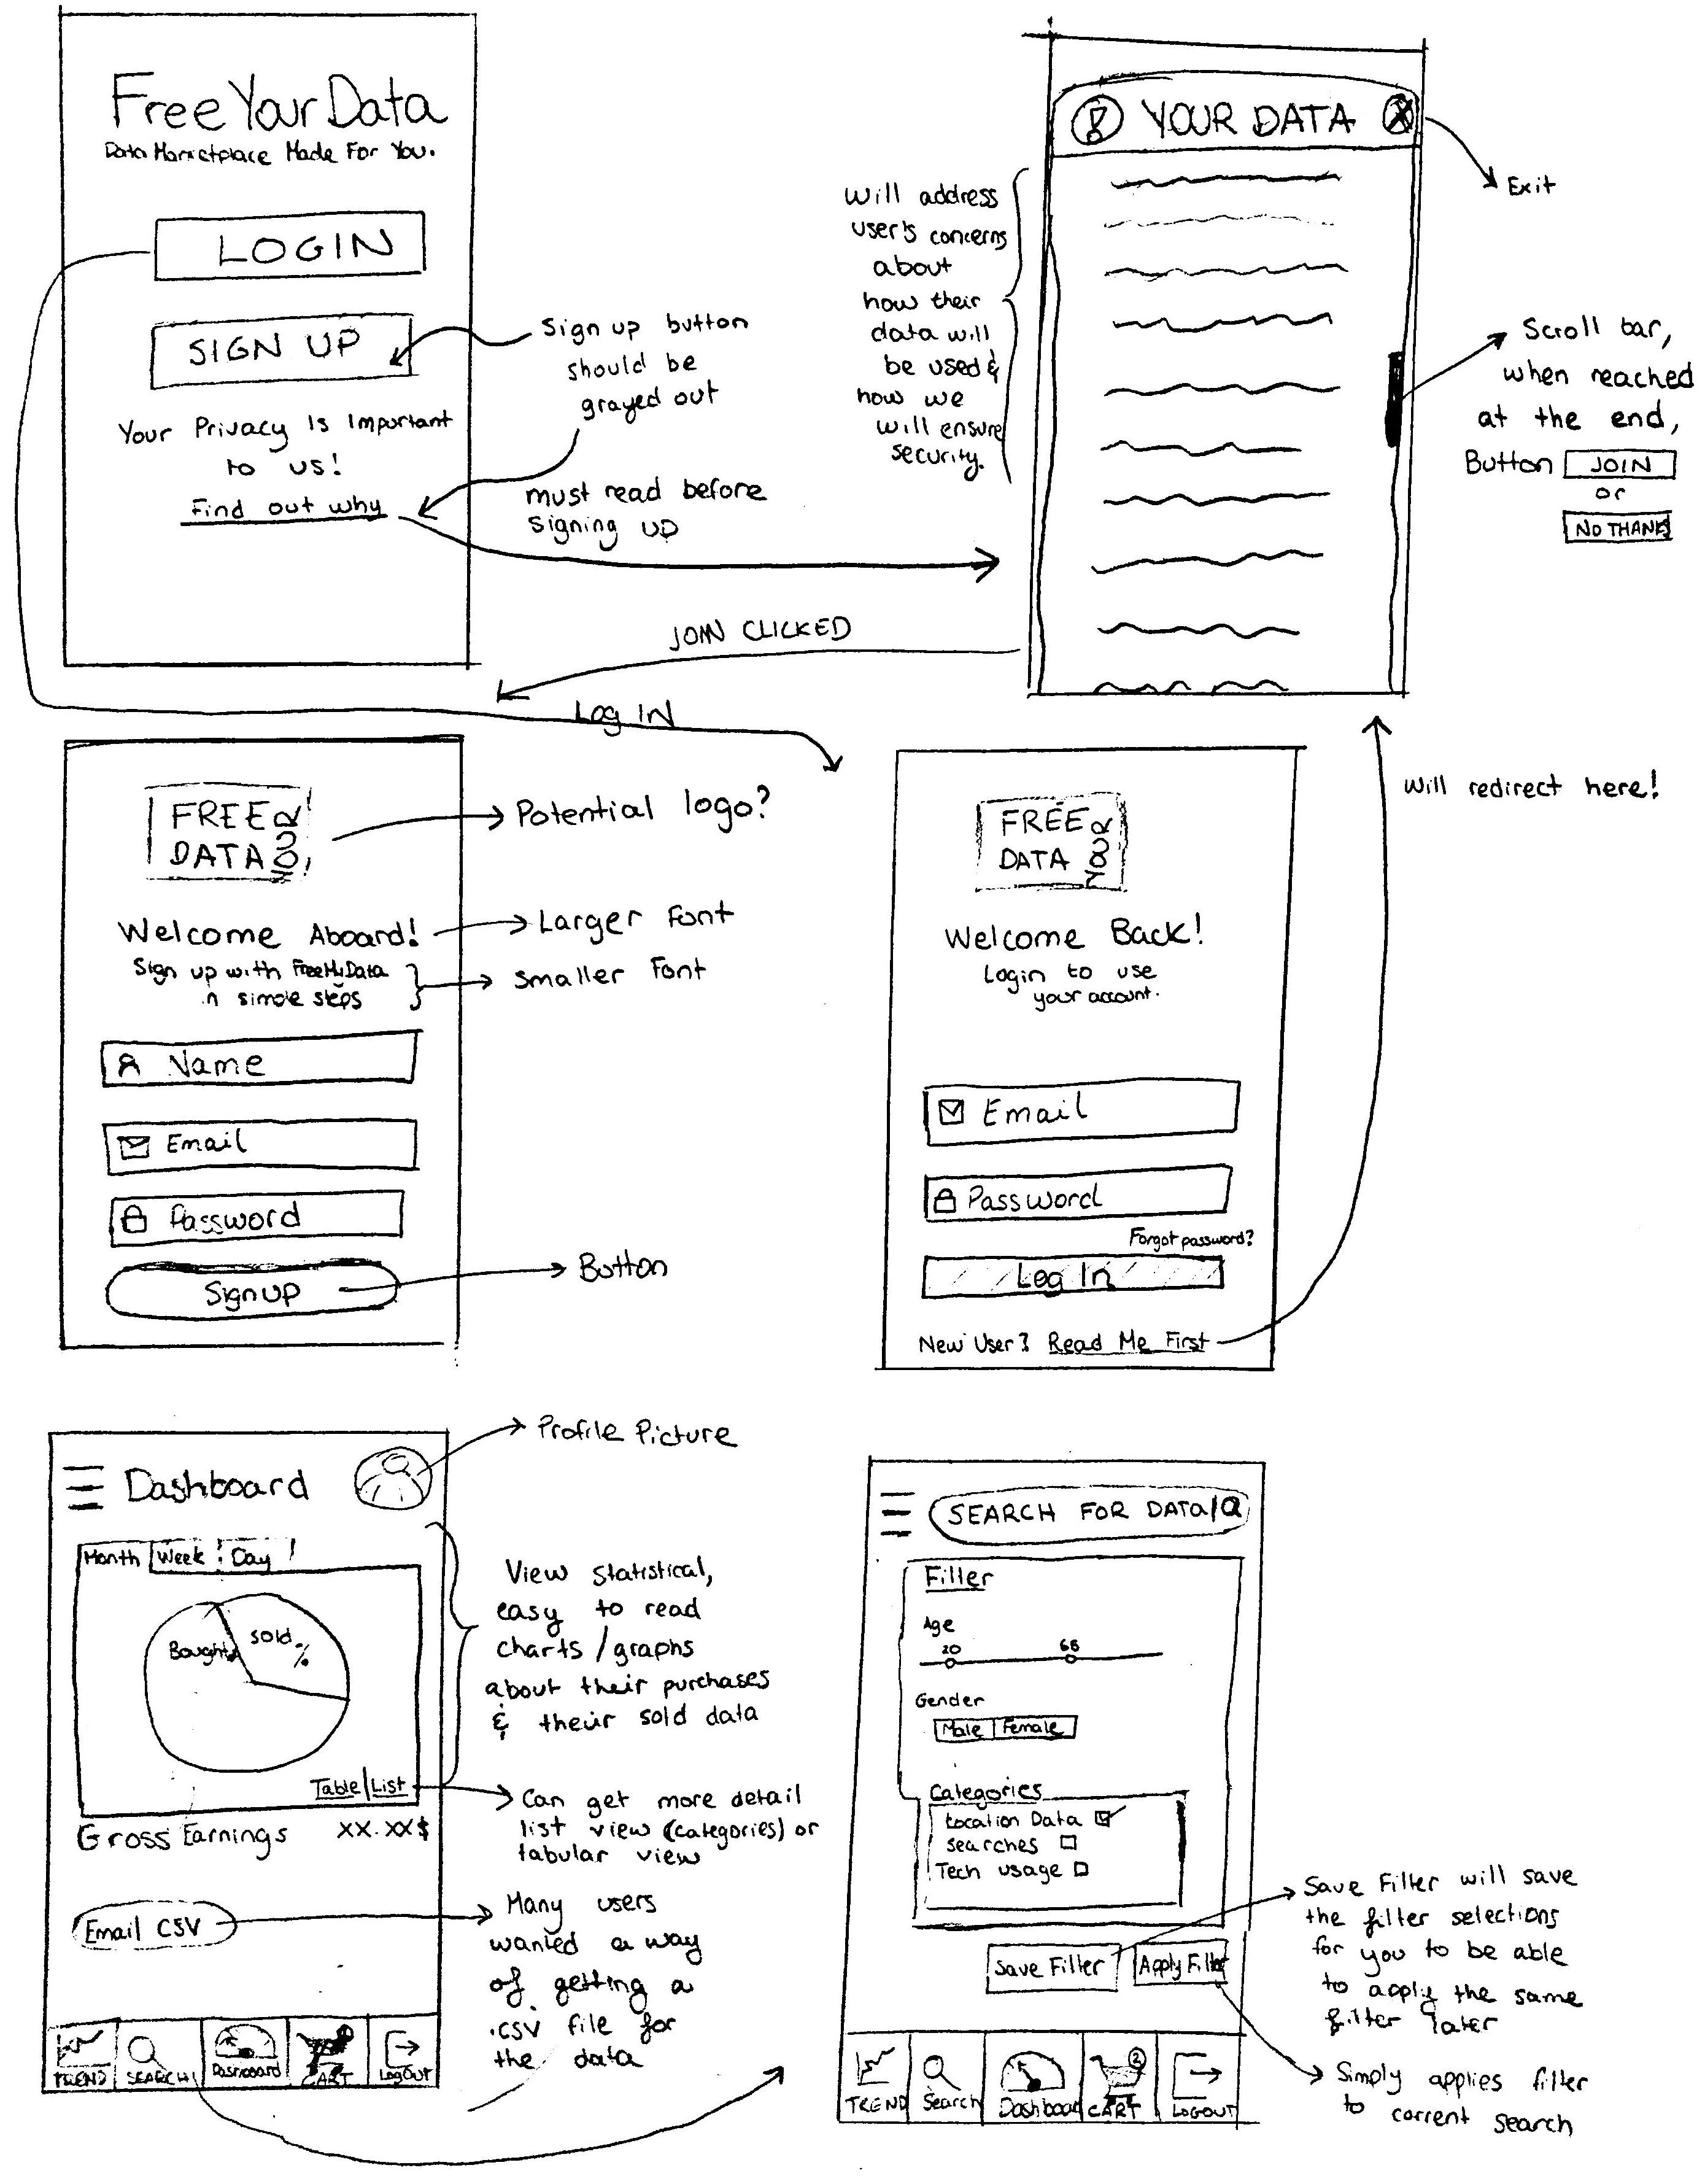 Free Your Data
Data Marketplace Made For You.
LOGIN
SIGN UP
Your Privacy Is Important
to us!
Find out why
Sign up button
should be
grayed out
must read before
signing up
YOUR DATA
Exit
Will address
user's concerns
about
how their
data will
be used &
how we
will ensure
security.
Scroll bar,
when reached
at the end,
Button JOIN
or
NO THANKS
JOIN CLICKED
Log IN
FREE YOUR
DATA
Potential logo?
Welcome Aboard!
Larger Font
Sign up with FreeMyData
in simple steps
Smaller Font
Name
Email
Password
Sign up
Button
FREE YOUR
DATA
Welcome Back!
Login to use
your account.
Email
Password
Forgot password?
Log In
New User? Read Me First
Will redirect here!
Dashboard
Profile Picture
Month Week Day
Bought
Sold
%
Table | List
Gross Earnings XX.XX$
Email CSV
TREND SEARCH Dashboard CART LogOut
View statistical,
easy to read
charts/graphs
about their purchases
& their sold data
Can get more detail
list view (categories) or
tabular view
Many users
wanted a way
of getting a
.csv file for
the data
SEARCH FOR DATA
Filter
Age
20 65
Gender
Male Female
Categories
Location Data
searches
Tech usage
Save Filter Apply Filter
TREND Search Dashboard CART 2 LOGOUT
Save Filter will save
the filter selections
for you to be able
to apply the same
filter later
Simply applies filter
to corrent search